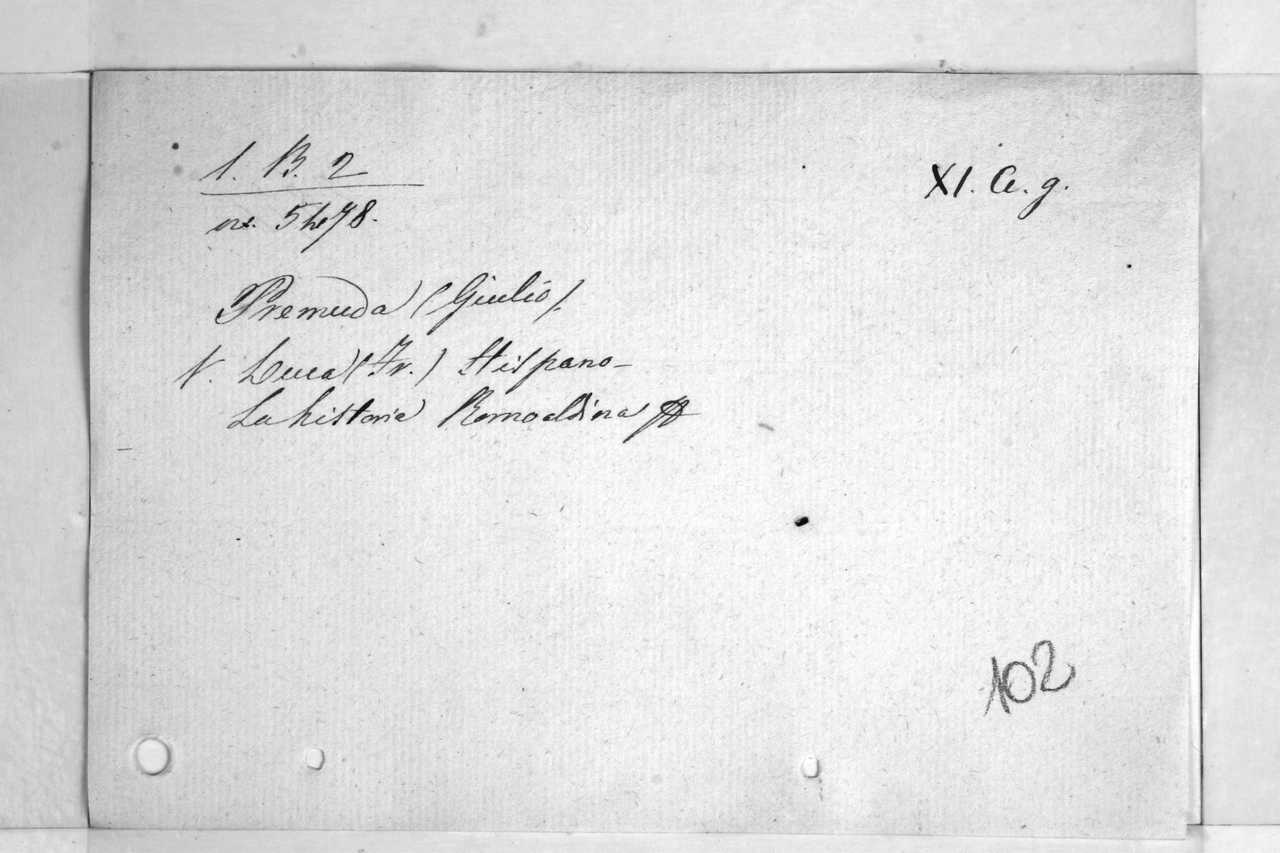 1. B. 2
XI. a. g.
nr. 5478.
Premuda (Giulio).
V. Luca (Fr.) Hispano-
La historia Romoaldina
102